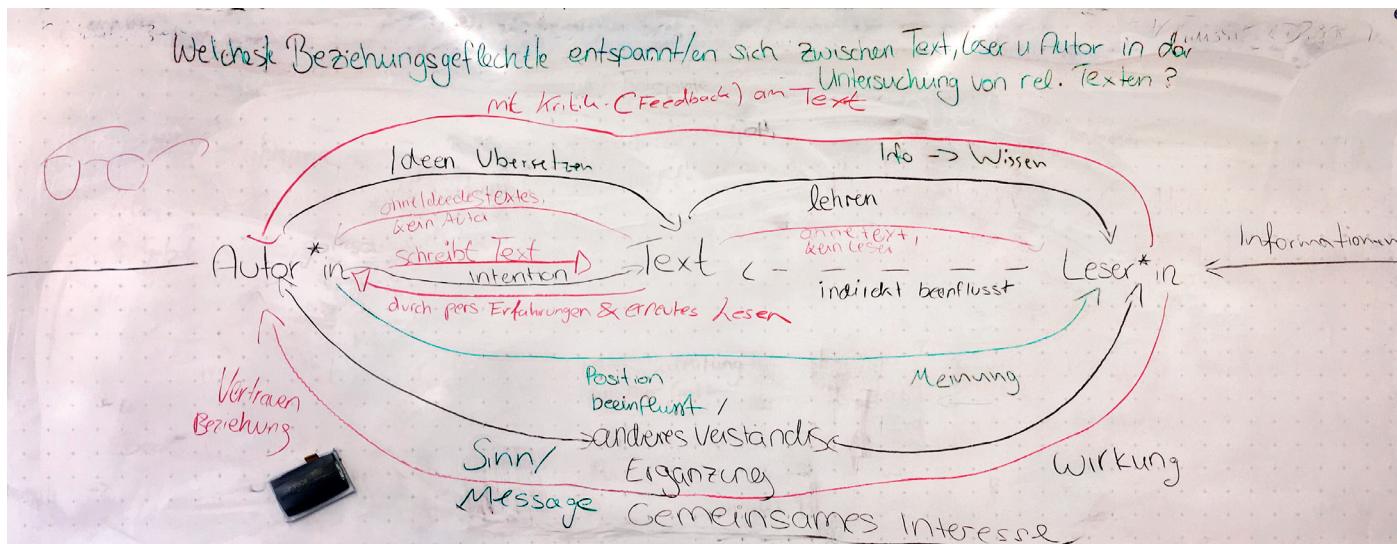 Welches/e Beziehungsgeflecht/e entspannt/en sich zwischen Text, Leser u Autor in der
Untersuchung von rel. Texten?
mit Kritik (Feedback) am Text
Ideen Übersetzen
Info -> Wissen
ohne Idee des Textes,
kein Autor
lehren
ohne Text,
kein Leser
schreibt Text
Autor*in
Text
Leser*in
Intention
indirekt beeinflusst
durch pers. Erfahrungen & erneutes Lesen
Position
beeinflusst /
Meinung
Vertrauen
Beziehung
anderes Verständnis
Ergänzung
Sinn/
Message
Wirkung
Gemeinsames Interesse